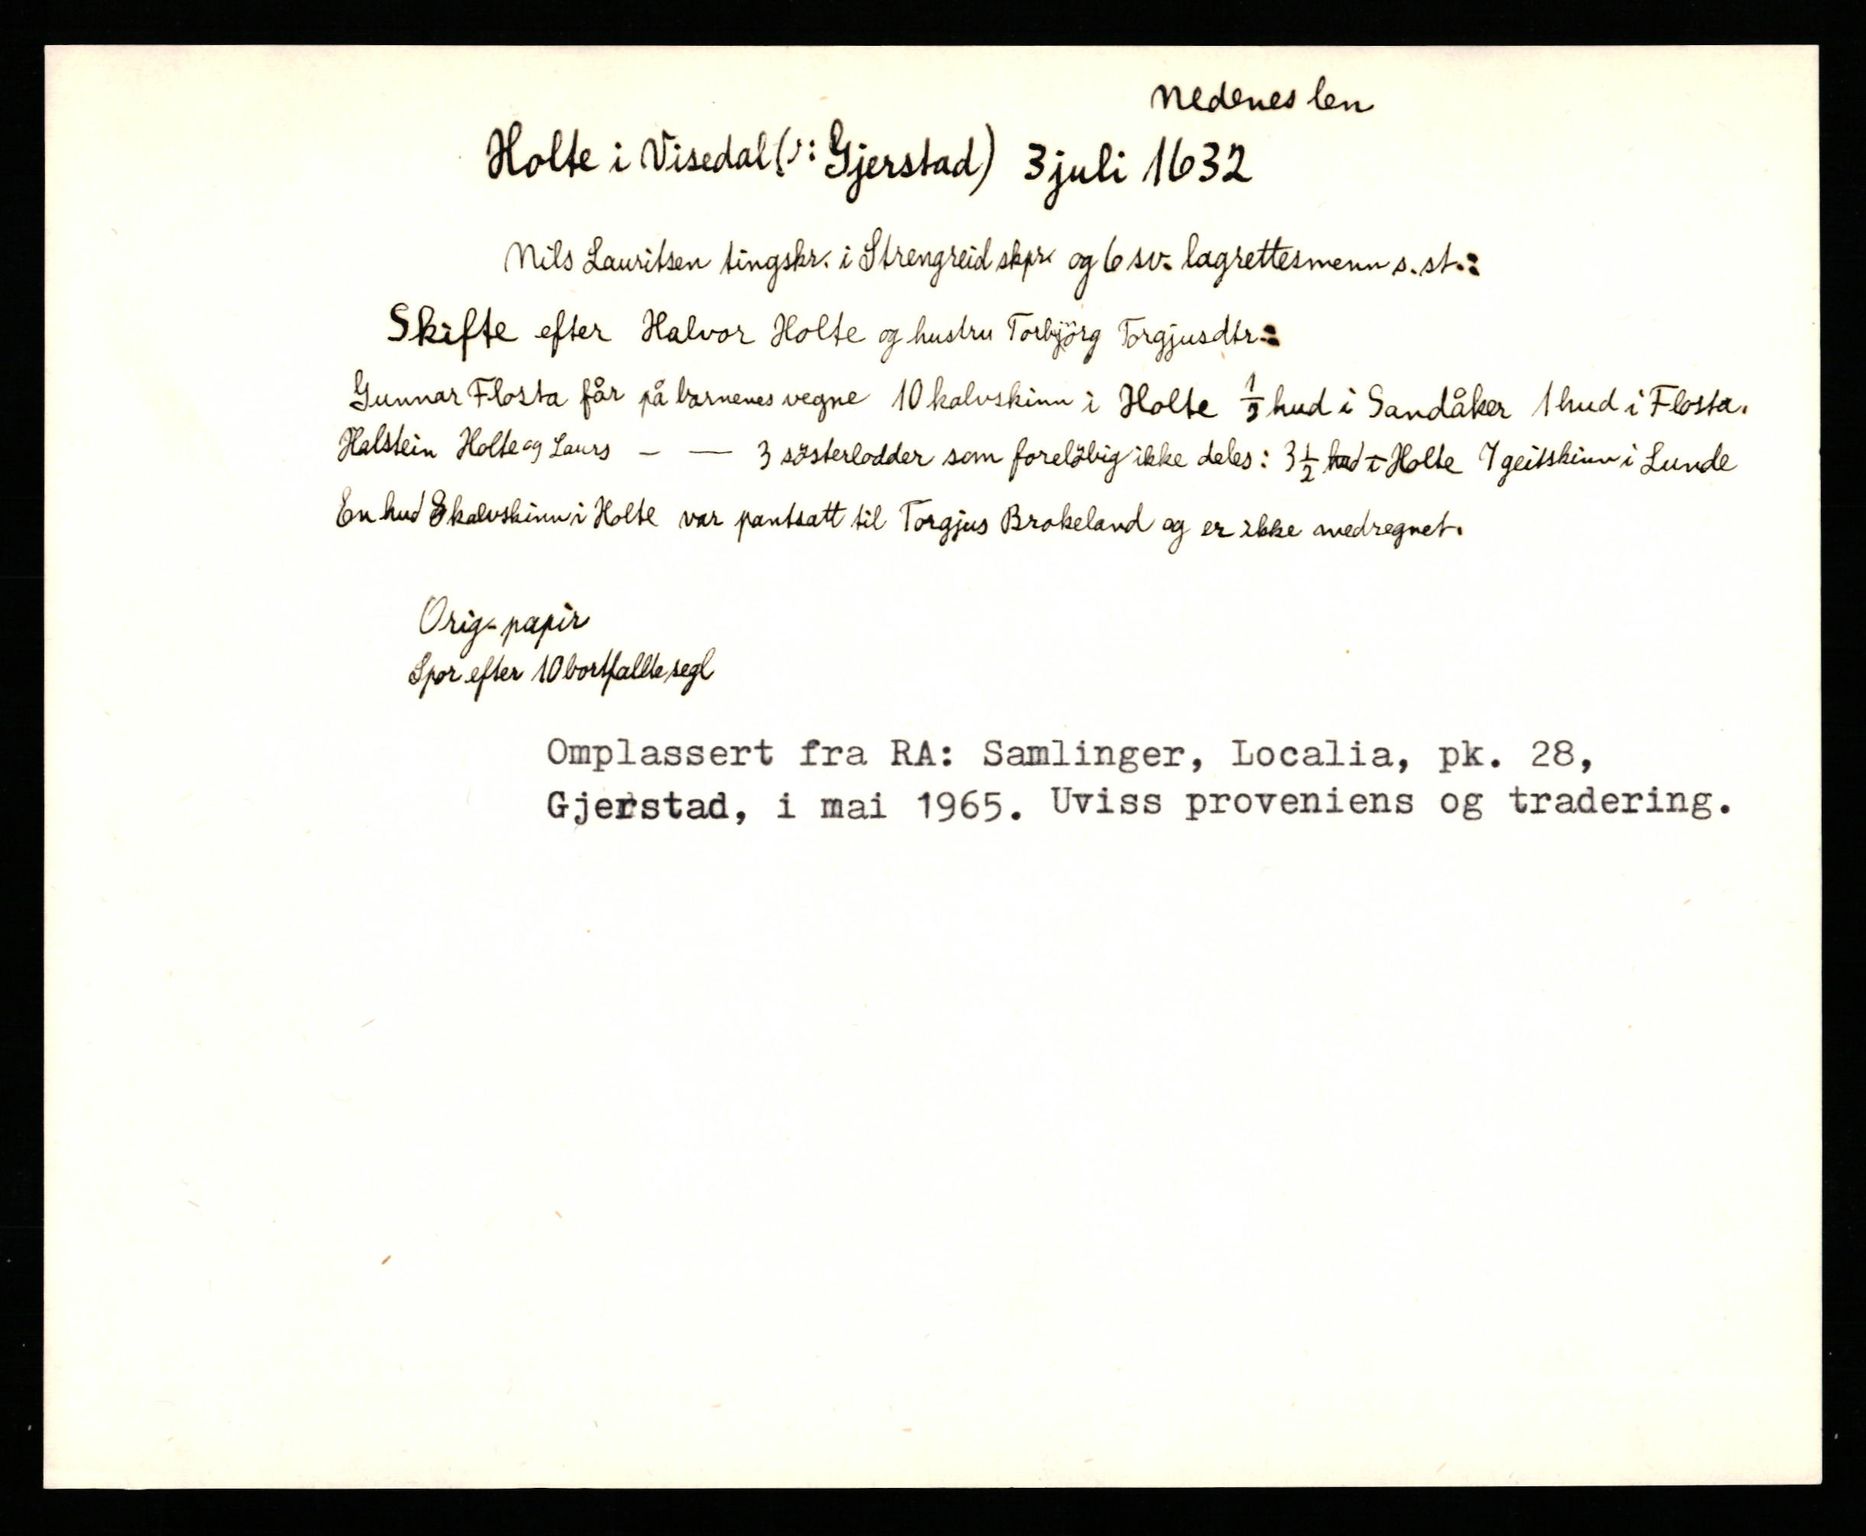 Nedenes len
Holte i Visedal (ɔ: Gjerstad) 3 juli 1632
Nils Lauritsen tingskr. i Strengreid skpr. og 6 sv. lagrettesmenn s. st.:
Skifte efter Halvor Holte og hustru Torbjörg Torgjusdtr.:
Gunnar Flosta får på barnenes vegne 10 kalvskinn i Holte 1/3 hud i Sandåker 1 hud i Flosta.
Halstein Holte og Laurs — — 3 sösterlodder som forelöbig ikke deles: 3 1/2 hud i Holte 7 geitskinn i Lunde
En hud 8 kalvskinn i Holte var pantsatt til Torgjus Brokeland og er ikke medregnet.
Orig- papir
Spor efter 10 bortfallte segl
Omplassert fra RA: Samlinger, Localia, pk. 28,
Gjerstad, i mai 1965. Uviss proveniens og tradering.